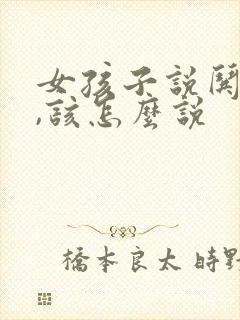 女孩子說
,該怎麼說
橋本良太 時